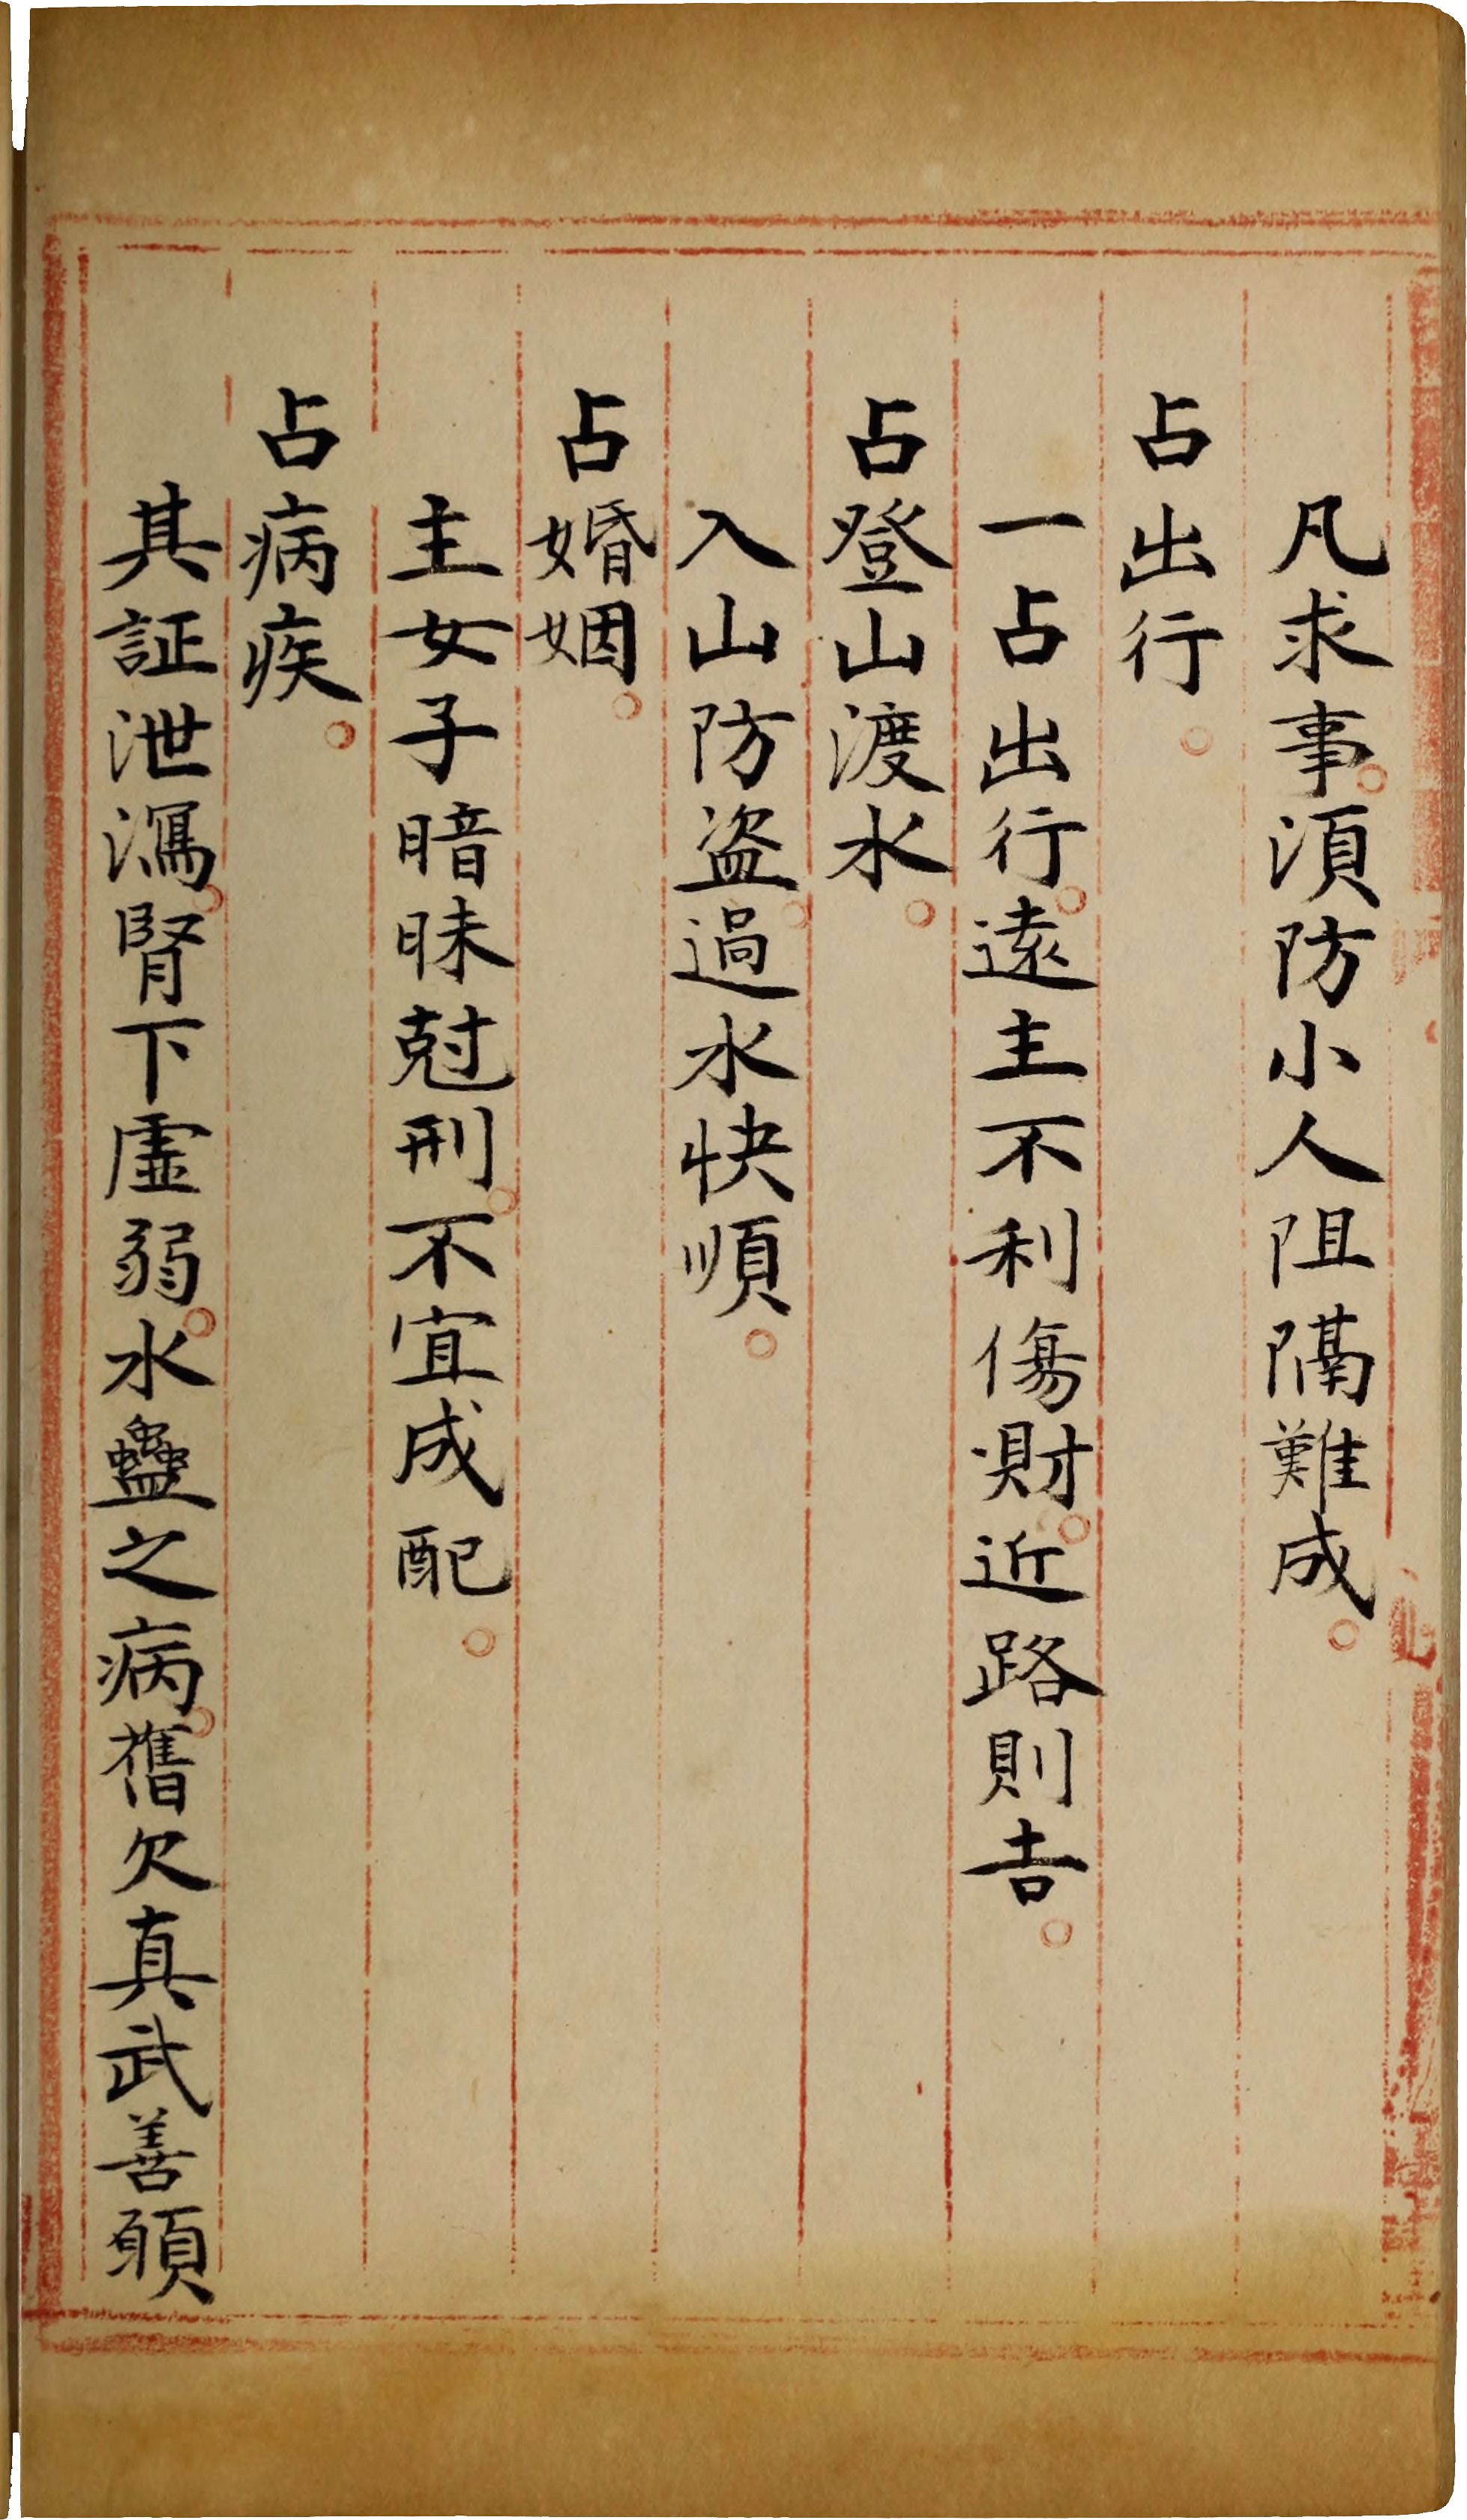 凡求事須防小人阻隔難成
占出行
一占出行遠主不利傷財近路則吉
占登山渡水
入山防盜過水快順
占婚姻
主女子暗昧尅刑不宜成配
占病疾
其証泄瀉腎下虛弱水蠱之病舊欠真武善願